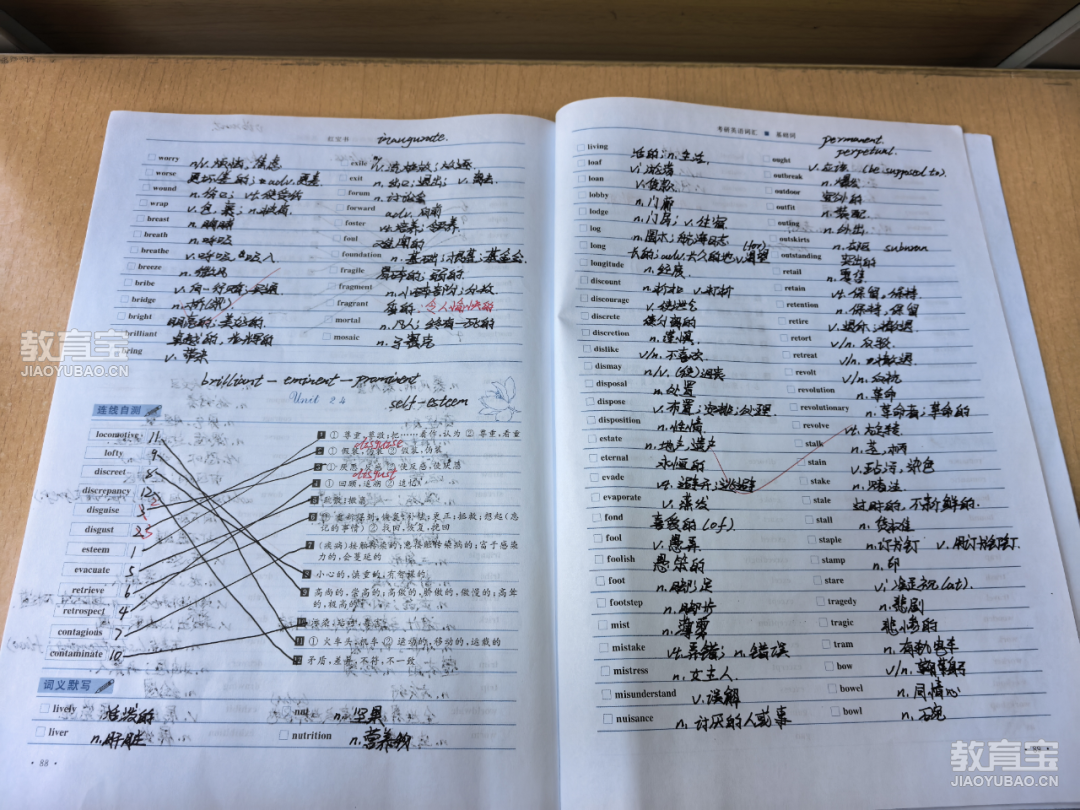 红宝书 inaugurate.
worry n./v. 烦恼, 焦虑
exile
worse 更坏的; adv. 更差
exit n. 出口; 退出; v. 离去
wound n. 伤口; vt. 使受伤
forum n. 讨论会
wrap v. 包, 裹; n. 披肩
forward adv. 向前
breast n. 胸脯
foster vt. 培养; 领养
breath n. 呼吸
foul
breathe v. 呼吸
foundation n. 基础; 根基; 基金会.
breeze n. 微风
fragile 易碎的; 弱的
bribe v. 向…行贿
fragment n. 小碎片
bridge n. 桥
fragrant 香的 令人愉快的
bright 明亮的; 美好的.
mortal n. 凡人; 终有一死的
brilliant
mosaic n. 马赛克
bring v. 带来
brilliant — eminent — prominent
Unit 24 self-esteem
连线自测
locomotive 11
lofty 9
discreet 8
discrepancy 12
disguise
disgust
esteem 1
evacuate 5
retrieve 6
retrospect 4
contagious 7
contaminate 10
1 ① 尊重, 尊敬; 把……看作, 认为 ② 尊重, 看重
2 ① 假装, 伪装 ② 假装, 伪装 disguise
3 ① 厌恶, 反感 ② 使反感, 使厌恶
4 ① 回顾, 追溯 ② 追忆 disgust
5 疏散; 撤离
6 ① 重新得到, 恢复; 补救, 更正; 拯救; 想起(忘记的事情) ② 找回, 恢复, 挽回
7 (疾病)接触传染的; 患接触传染病的; 富于感染力的, 会蔓延的
8 小心的, 谨慎的; 有智谋的
9 高尚的, 崇高的; 高傲的, 骄傲的, 傲慢的; 高耸的, 极高的
10 污染
11 ① 火车头; 机车 ② 运动的, 移动的, 运载的
12 矛盾, 差异, 不符, 不一致
词义默写
lively 活泼的
nut n. 坚果
liver n. 肝脏
nutrition n. 营养物
· 88 ·
考研英语词汇 ■ 基础词 permanent perpetual.
living 活的; n. 生活.
ought v. 应该 (be supposed to).
loaf
outbreak n. 爆发
loan v. 贷款
outdoor 室外的
lobby n. 门廊
outfit n. 装配
lodge n. 门房; v. 住宿
outing n. 外出
log n. 圆木; 航海日志
outskirts n. 郊区 suburan
long 长的; adv. 长久的地 v. 渴望 (for)
outstanding 突出的
longitude n. 经度
retail n. 零售
discount n. 折扣 v. 打折
retain vt. 保留, 保持.
discourage
retention n. 保持, 保留
discrete 使分离的
retire
discretion n. 谨慎
retort v/n. 反驳
dislike v/n. 不喜欢
retreat v/n. 撤退
dismay
revolt v/n. 反抗
disposal n. 处置
revolution n. 革命
dispose v. 布置; 安排; 处理
revolutionary n. 革命者; 革命的
disposition n. 性情
revolve
estate n. 地产, 遗产
stalk n. 茎
eternal 永恒的
stain v. 玷污, 染色
evade
stake n. 赌注
evaporate v. 蒸发
stale 过时的, 不新鲜的
fond 喜爱的 (of)
stall n. 货摊位
fool v. 愚弄
staple n. 订书钉 v. 用订书钉钉.
foolish 愚笨的
stamp n. 印
foot n. 脚; 足
stare
footstep n. 脚步
tragedy n. 悲剧
mist n. 薄雾
tragic
mistake vt. 弄错; n. 错误
tram n. 有轨电车
mistress n. 女主人
bow v/n. 鞠躬
misunderstand v. 误解
bowel n. 同情心
nuisance n. 讨厌的人或事
bowl n. 碗
· 89 ·
教育宝
JIAOYUBAO.CN
教育宝
JIAOYUBAO.CN
教育宝
JIAOYUBAO.CN